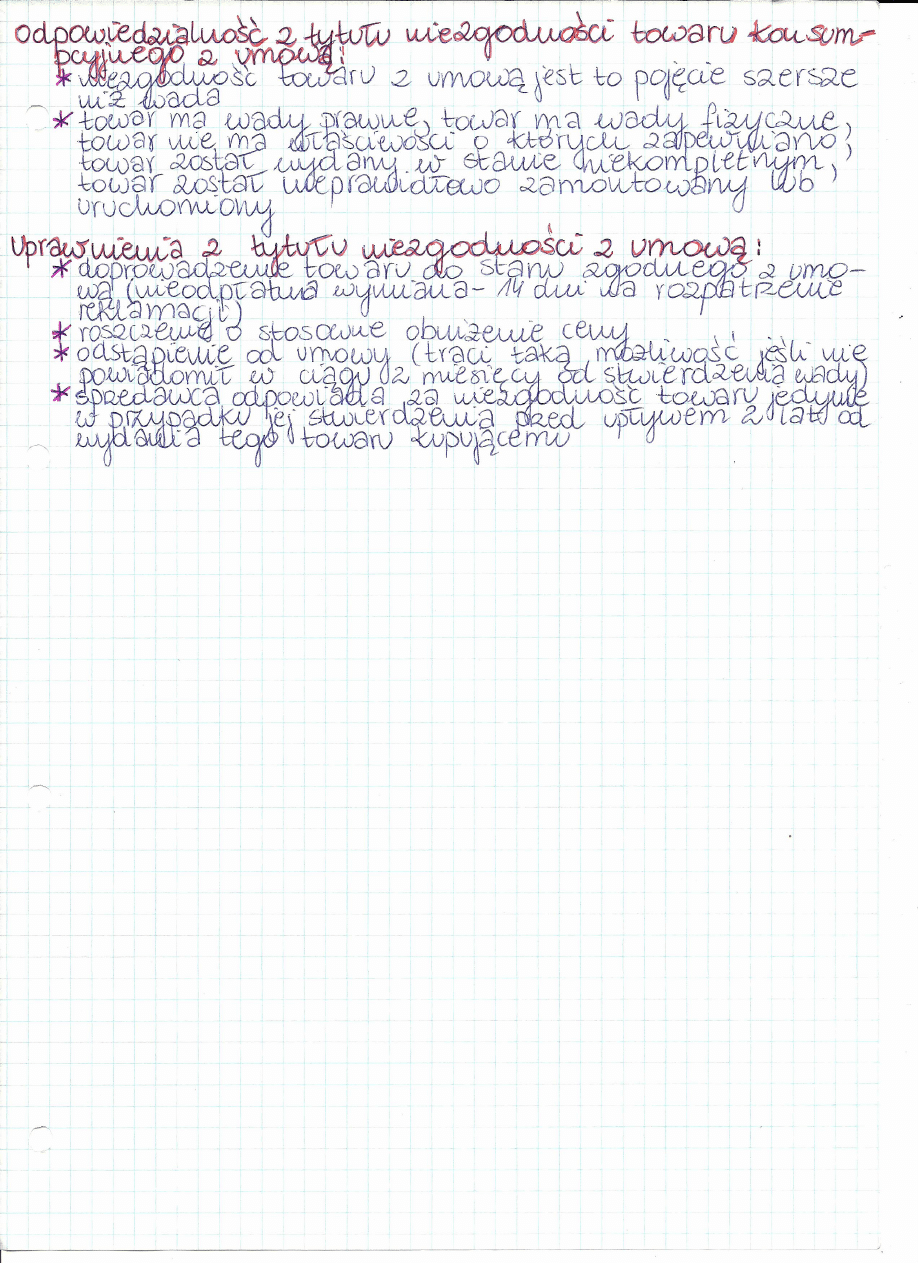 Odpowiedzialność z tytułu niezgodności towaru konsum-
pcyjnego z umową:
* niezgodność towaru z umową jest to pojęcie szersze
niż wada
* towar ma wady prawne, towar ma wady fizyczne,
towar nie ma właściwości o których zapewniano,
towar został wydany w stanie niekompletnym,
towar został nieprawidłowo zamontowany lub
uruchomiony
Uprawnienia z tytułu niezgodności z umową:
* doprowadzenie towaru do stanu zgodnego z umo-
wą (nieodpłatna wymiana - 14 dni na rozpatrzenie
reklamacji)
* roszczenie o stosowne obniżenie ceny
* odstąpienie od umowy (traci taką możliwość jeśli nie
powiadomił w ciągu 2 miesięcy od stwierdzenia wady)
* sprzedawca odpowiada za niezgodność towaru jedynie
w przypadku jej stwierdzenia przed upływem 2 lat od
wydania tego towaru kupującemu